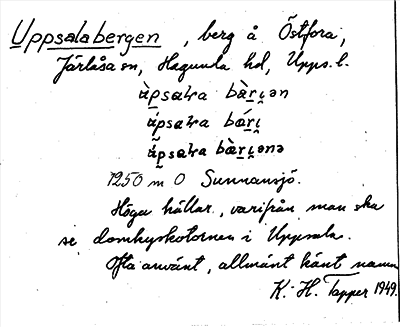 Uppsalabergen, berg å Östfora,
Järlåsa sn, Hagunda hd, Upps. l.
àpsaɫra bàrı̣ən
ápsaɫra bárı̣
ã̀psaɫra bàrı̣ənə
1250 m O Sunnansjö.
Höga hällar, varifrån man ska
se domkyrkotornen i Uppsala.
Ofta använt, allmänt känt namn
K.-H. Tapper 1949.